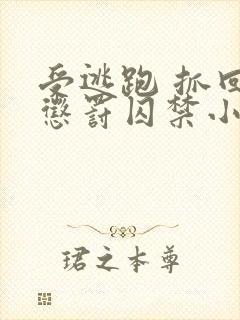 受逃跑 抓回
惩罚囚禁小
珺之本尊